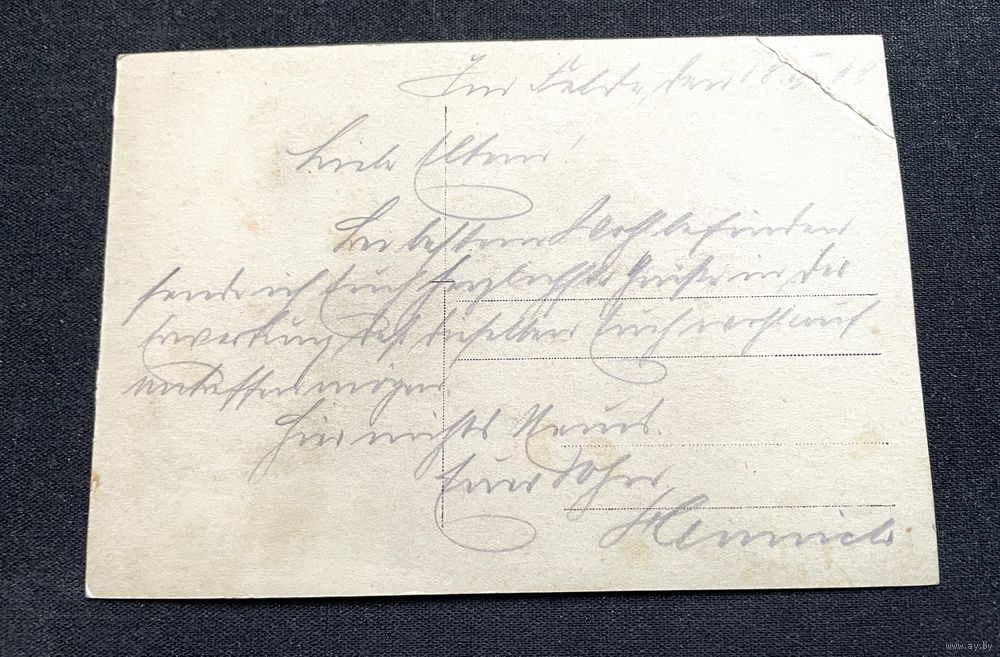 Im Felde, den
Liebe Eltern!
Bei bestem Wohlbefinden
sende ich Euch herzlichste Grüße in der
Erwartung, daß dieselben Euch wohlauf
antreffen mögen.
Hier nichts Neues.
Euer Sohn
Heinrich
www.ay.by